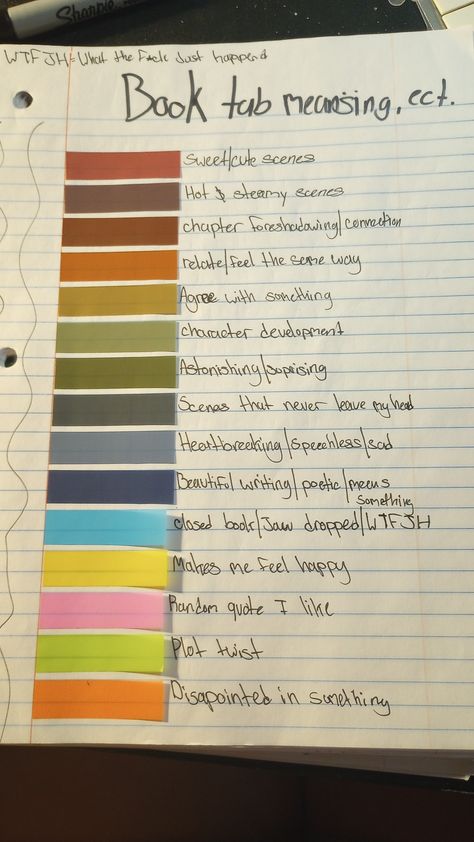 Sharpie
WTFJH=What the Fuck Just happend
Book tab meansing, ect.
Sweet/cute scenes
Hot & steamy scenes
chapter foreshadowing/connection
relate/feel the same way
Agree with something
character development
Astonishing/suprising
Scenes that never leave my head
Heartbreeking/speechless/sad
Beautiful writing/poetic/meens
something
closed book/Jaw dropped/WTFJH
Makes me feel happy
Random quote I like
Plot twist
Disapointed in something